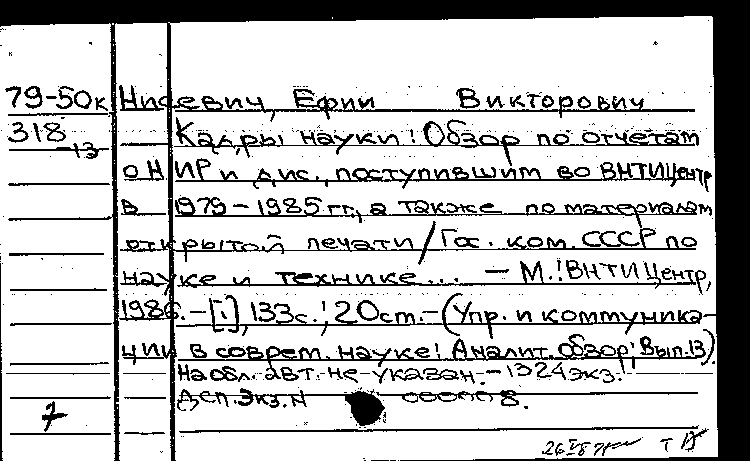 79-50к Нисевич, Ефим Викторович
318 Кадры науки: Обзор по отчетам
-13
о НИР и дис., поступившим во ВНТИЦентр
в 1979-1985 гг., а также по материалам
открытой печати/Гос. ком. СССР по
науке и технике... - М.: ВНТИЦентр,
1986. - [1], 133с.; 20см. - (Упр. и коммуника-
ции в соврем. науке: Аналит. обзор; Вып. 13)
На обл. авт. не указан. - 1324 экз.
ДСП. Экз. N 000008.